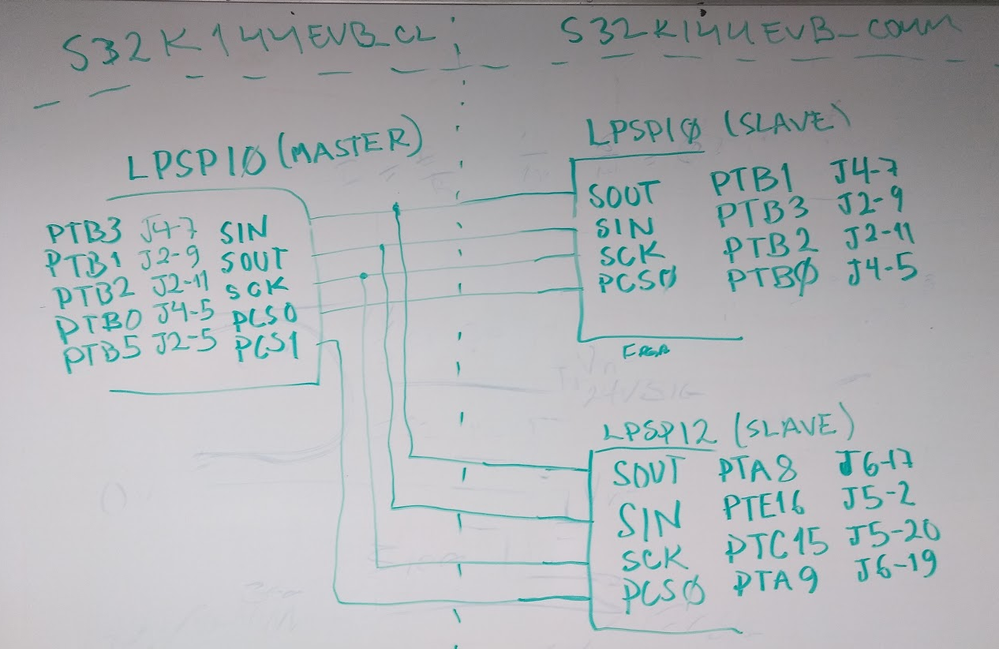 S32K144EVB_CL
S32K144EVB_comm
LPSPI0 (MASTER)
PTB3 J4-7 SIN
PTB1 J2-9 SOUT
PTB2 J2-11 SCK
PTB0 J4-5 PCS0
PTB5 J2-5 PCS1
LPSPI0 (SLAVE)
SOUT PTB1 J4-7
SIN PTB3 J2-9
SCK PTB2 J2-11
PCS0 PTB0 J4-5
LPSPI2 (SLAVE)
SOUT PTA8 J6-17
SIN PTE16 J5-2
SCK PTC15 J5-20
PCS0 PTA9 J6-19